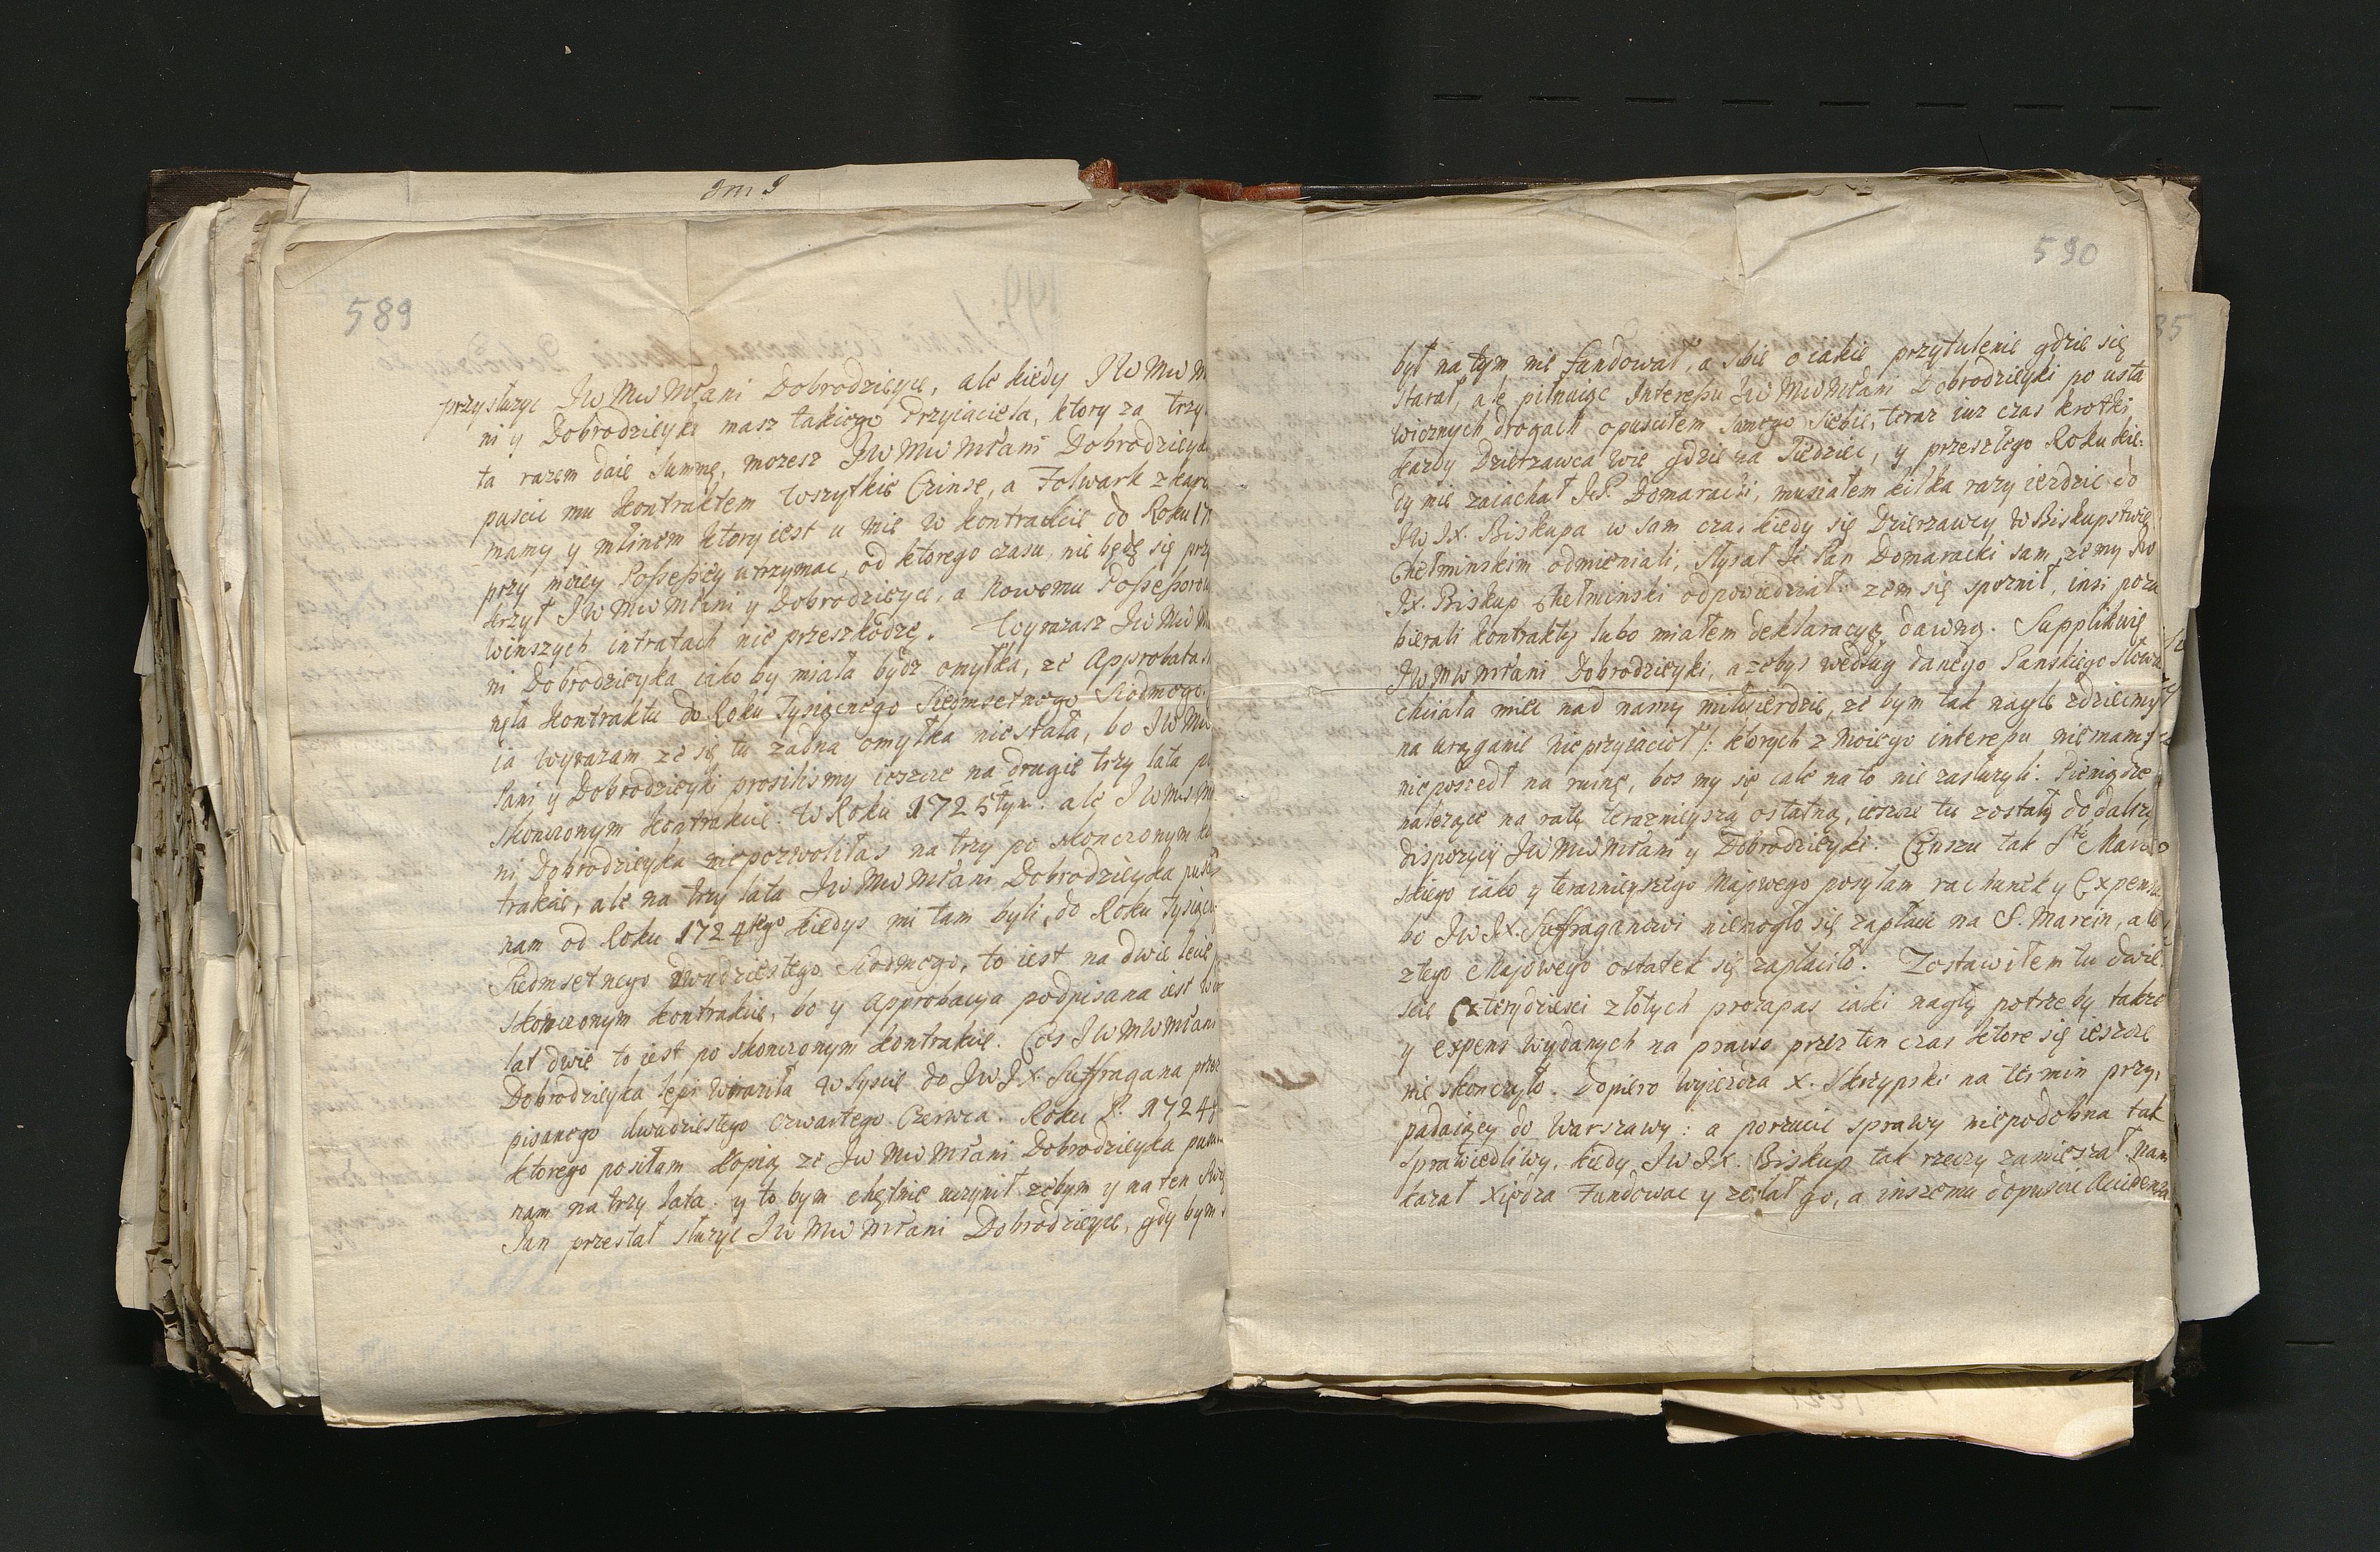 589
przysłuzyc JWMWMPani Dobrodzieyce, ale kiedy JWMWM
ni y Dobrodzieyka masz takiego Przyiaciela, ktory za trzy
ta razem daie summę, mozesz JWMWMPani Dobrodzieyka
puscic mu kontraktem wszytkie Czinsze, a Folwark z karcz
mamy y młinem ktory iest u mie w kontrakcie do Roku 17
przy moiey Possessyey utrzymac, od ktorego czasu nie będę się przy
krzył JWMWMPani y Dobrodzieyce, a Nowemu Possessorow
w inszych intratach nie przeszkodzę. Wyrazasz JWMWM
ni Dobrodzieyka iako by miała bydz omyłka, ze Approbata
nęła kontraktu do Roku Tysiącnego Siedmsetnego Siodmego
ia wyrazam ze się tu zadna omyłka nie stała, bo JWMW
Pani y Dobrodzieyki prosilismy ieszcze na drugie trzy lata po
skonczonym kontrakcie w Roku 1725tym. ale JWMWM
ni Dobrodzieyka niepozwoliłas na trzy po skonczonym ko
trakcie, ale na trzy lata JWMWMPani Dobrodzieyka pusc
nam od Roku 1724tego kiedys mi tam byli, do Roku tysiącz
Siedmsetnego dwudziestego Siodmego, to iest na dwie lecie
skonczonym kontrakcie, bo y Approbacya podpisana iest
lat dwie to iest po skonczonym kontrakcie. Cos JWMWMPani
Dobrodzieyka lepi wyraziła w Lyscie do JWJX. Suffragana przez
pisanego dwudziestego czwartego Czerwca. Roku P. 1724
ktorego posiłam kopią ze JWMWMPani Dobrodzieyka pusci
nam na trzy lata. y to bym chętnie uczynił zebym y na ten Swię
Jan przestał słuzyc JWMWMPani Dobrodzieyce, gdy bym
590
był na tym nie fundował, a sobie o iakie przytulenie gdzie się
starał, ale pilnuiąc Interessu JWMWMPani Dobrodzieyki po usta
wicznych drogach opusciłem samego siebie, teraz iuz czas krotki
kazdy Dzierzawca wie gdzie za siedziec, y przeszłego Roku kie=
dy mie zaiachał JP. Domaracki, musiałem kilka razy iezdzic do
JWJX. Biskupa w sam czas kiedy się Dzierzawcy w Biskupstwie
Chełminskim odmieniali, słyszał JPan Domaracki sam, ze my JW
JX. Biskup Chełminski odpowiedział: zem się spoznił, insi poza
bierali kontrakty lubo miałem deklaracyą dawną. Supplikuię
JWMWMPani Dobrodzieyki, azebys według danego Panskiego słowa
chciała miec nad namy miłosierdzie, ze bym tak nagle z dziecmy
na urąganie nieprzyiacioł /: ktorych z moiego interessu nie mam
nie poszedł na ruinę, bos my się cale na to nie zasłuzyli. Pieniądze
nalezące na ratę teraznieyszą ostatną, ieszcze tu zostały do dalszy
dispozycyi JWMWMPani y Dobrodzieyki. Czinszu tak Ste Marci=
skiego iako y teraznieyszego Majowego posyłam rachunek y Expensa
bo JWJX. Suffraganowi niemogło się zapłacic na S. Marcin, ale
z tego Majowego ostatek się zapłaciło. Zostawiłem tu dwie
scie czterydziesci złotych prozapas iaki nagłey potrzeby takze
y expens wydanych na prawo przez ten czas ktore się ieszcze
nie skonczyło. Dopiero wyiezdza X. Skrzypski na termin przy=
padaiący do Warszawy: a porzucic sprawy niepodobna tak
sprawiedliwy, kiedy JWJX. Biskup tak rzeczy zamieszał nam
kazał Xiędza Fundowac y zesłał go, a inszemu dopuscic Rezidenza